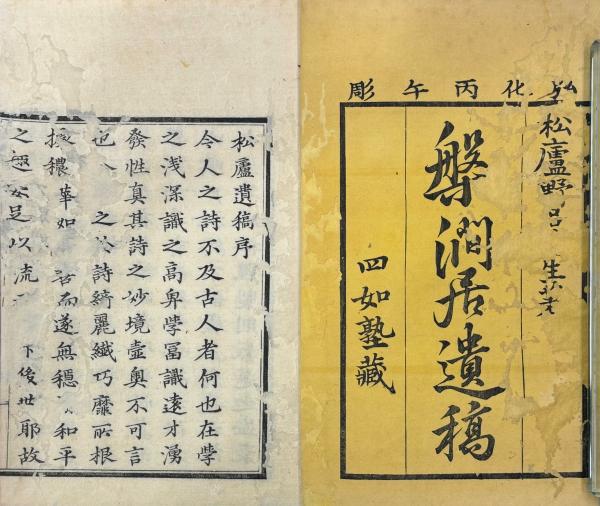 弘化丙午彫
松廬野呂生著
槃澗居遺稿
四如塾藏
松廬遺稿序
今人之詩不及古人者何也在學
之浅深識之高卑學冨識遠才湧
發性真其詩之妙境壼奥不可言
也之於詩綺麗纖巧靡所根
穠華如而遂無穩和平
之安足以流下後世耶故